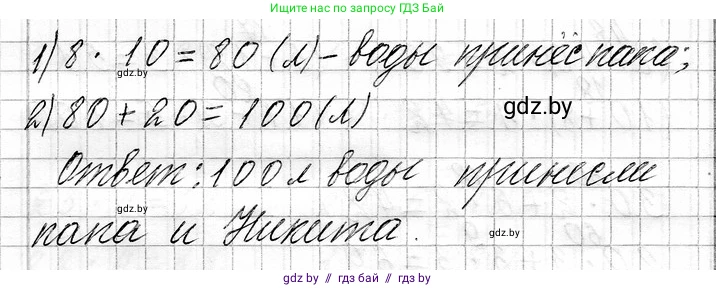 Ищите нас по запросу ГДЗ Бай
1) 8 · 10 = 80 (л) – воды принёс папа;
gdz.by
2) 80 + 20 = 100 (л)
gdz.by
Ответ: 100 л воды принесли
gdz.by
папа и Никита.
gdz.by
gdz.by // гдз бай // гдз by